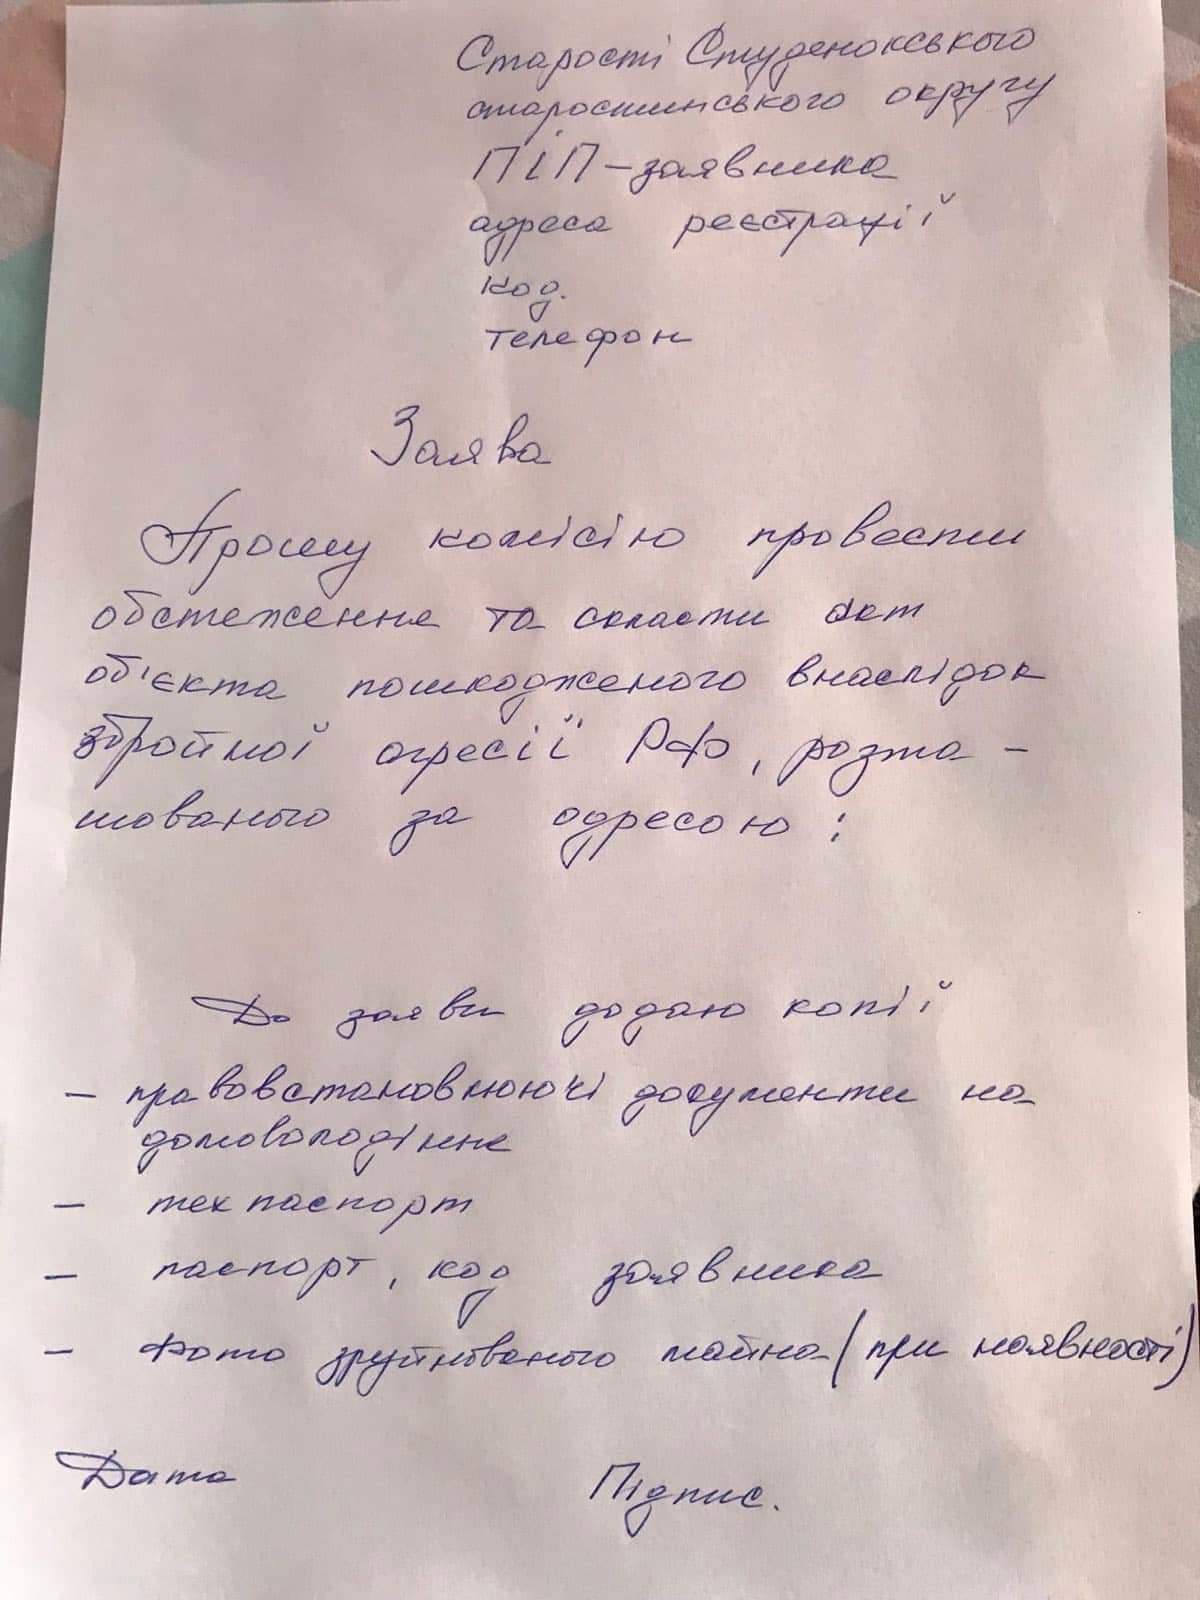 Старості Студенокського
старостинського округу
ПІП - заявника
адреса реєстрації
код.
телефон
Заява
Прошу комісію провести
обстеження та скласти акт
об'єкта пошкодженого внаслідок
збройної агресії РФ, розта-
шованого за адресою:
До заяви додаю копії
- правовстановлюючі документи на
домоволодіння
- техпаспорт
- паспорт, код заявника
- Фото зруйнованого майна (при наявності)
Дата Підпис.